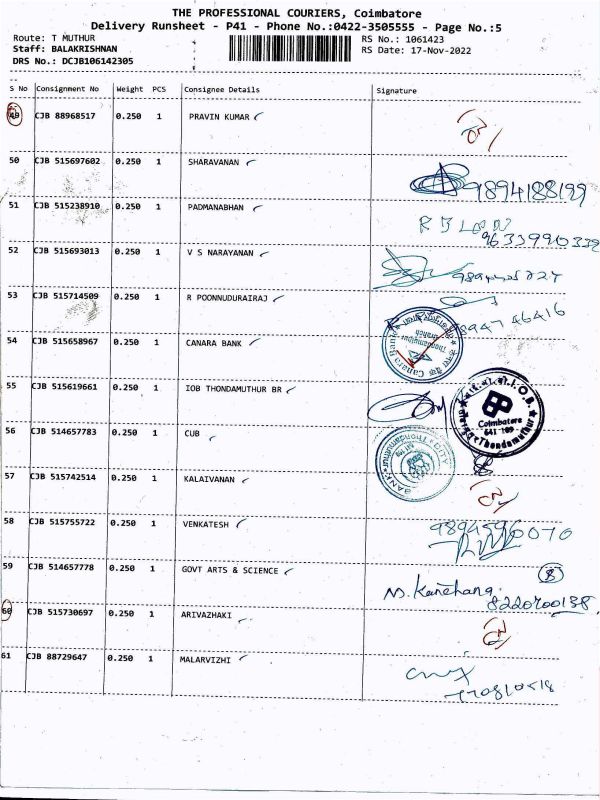 THE PROFESSIONAL COURIERS, Coimbatore
Delivery Runsheet - P41 - Phone No.:0422-3505555 - Page No.:5
Route: T MUTHUR
Staff: BALAKRISHNAN
DRS No.: DCJB106142305
RS No.: 1061423
RS Date: 17-Nov-2022
S No Consignment No Weight PCS Consignee Details Signature
49 CJB 88968517 0.250 1 PRAVIN KUMAR
50 CJB 515697602 0.250 1 SHARAVANAN 9894188199
51 CJB 515238910 0.250 1 PADMANABHAN
52 CJB 515693013 0.250 1 V S NARAYANAN
53 CJB 515714509 0.250 1 R POONNUDURAIRAJ
54 CJB 515658967 0.250 1 CANARA BANK
Canara Bank
Thondamuthur
Branch
55 CJB 515619661 0.250 1 IOB THONDAMUTHUR BR
I.O.B.
Coimbatore
641 109
Thondamuthur
56 CJB 514657783 0.250 1 CUB
57 CJB 515742514 0.250 1 KALAIVANAN
58 CJB 515755722 0.250 1 VENKATESH
59 CJB 514657778 0.250 1 GOVT ARTS & SCIENCE
8220700138
60 CJB 515730697 0.250 1 ARIVAZHAKI
61 CJB 88729647 0.250 1 MALARVIZHI